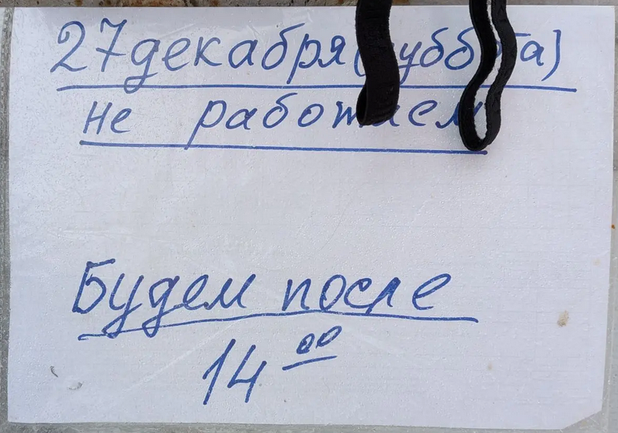 27 декабря (суббота)
не работаем
Будем после
14 00